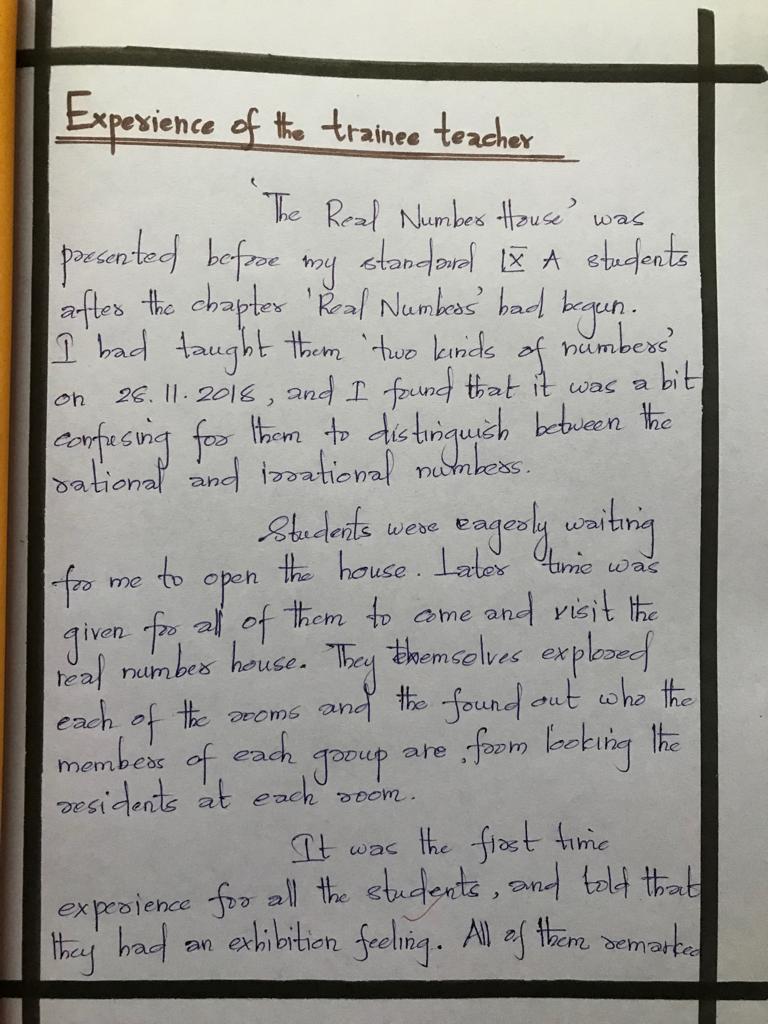 Experience of the trainee teacher
'The Real Number House' was
presented before my standard IX A students
after the chapter 'Real Numbers' had begun.
I had taught them 'two kinds of numbers'
on 26.11.2018, and I found that it was a bit
confusing for them to distinguish between the
rational and irrational numbers.
Students were eagerly waiting
for me to open the house. Later time was
given for all of them to come and visit the
real number house. They themselves explored
each of the rooms and the found out who the
members of each group are, from looking the
residents at each room.
It was the first time
experience for all the students, and told that
they had an exhibition feeling. All of them remarked